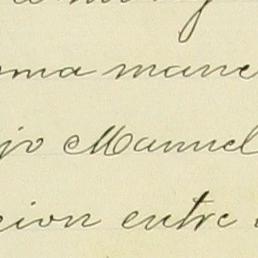 ma mane
jo Manuel
cion entre